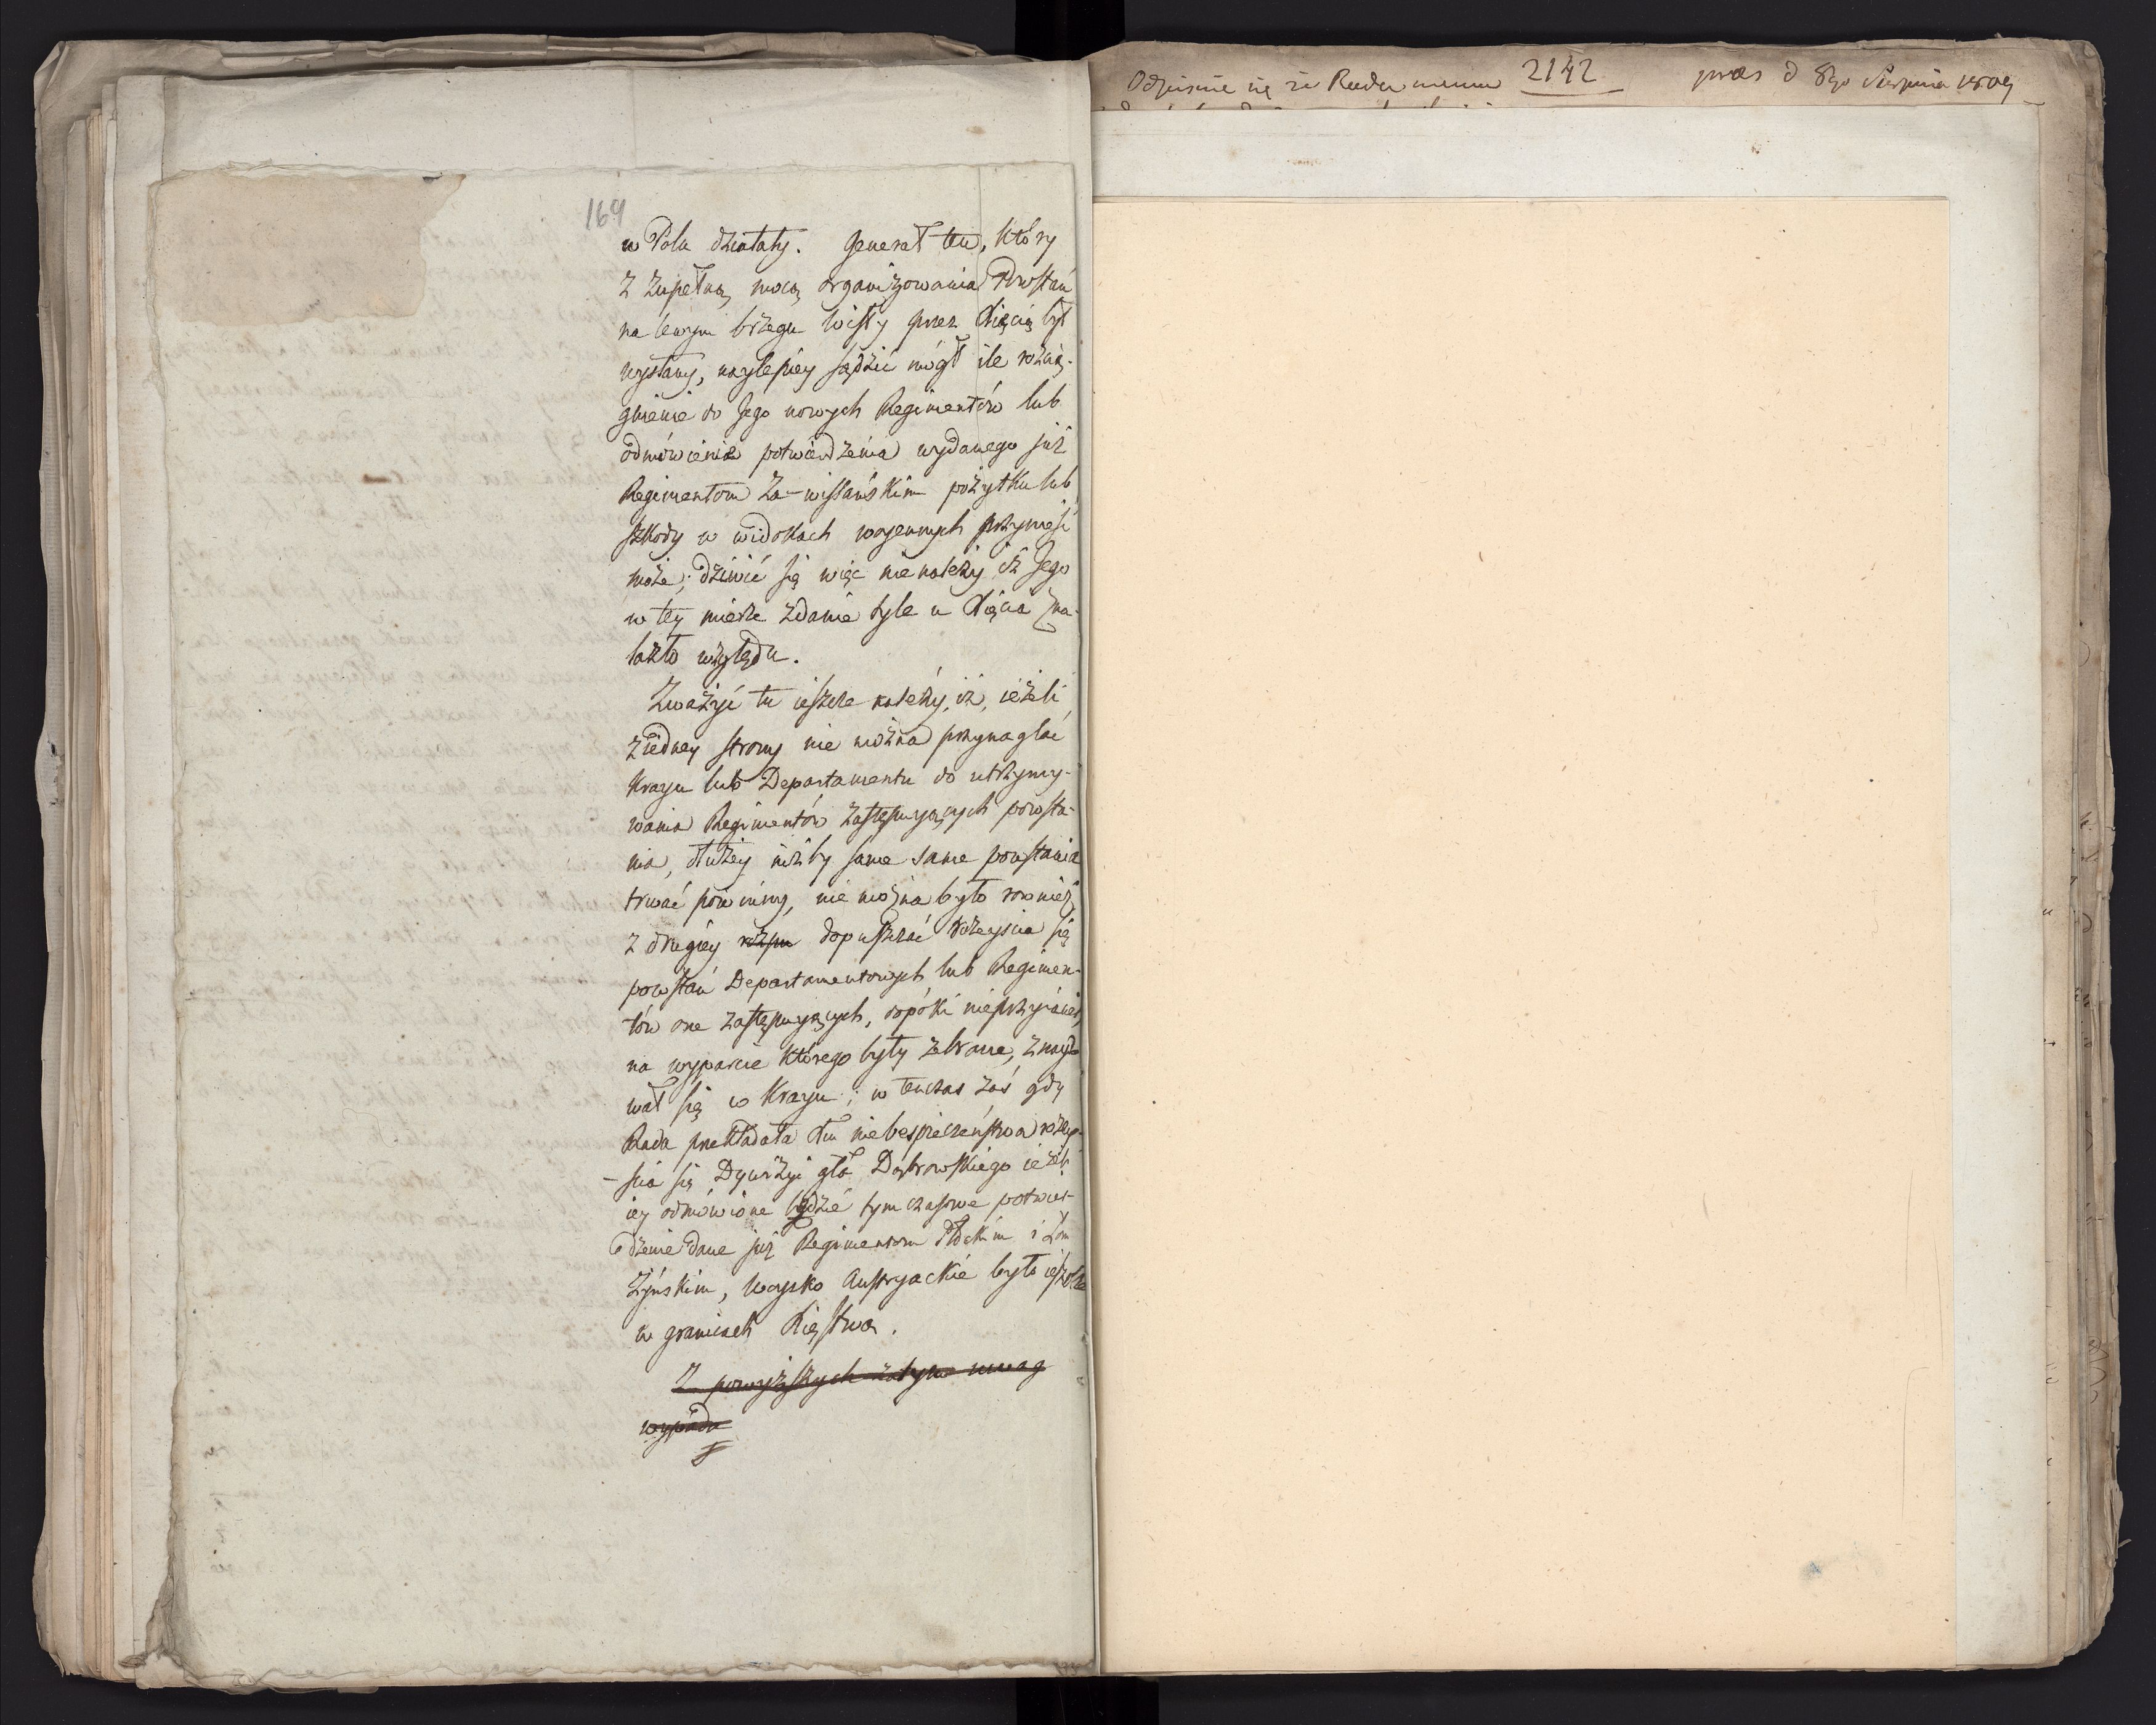 169
w Polu działały. Generał ten, który
z zupełną mocą organizowania Powstań
na lewym brzegu Wisły przez Xięcia był
wysłany, naylepiey sądzić mógł ile rozcią-
gnienie do Jego nowych Regimentów lub
odmówienie potwierdzenia wydanego już
Regimentom Za-wiślańskim pożytku lub
szkody w widokach woyennych przynieść
może; dziwić się więc nie należy iż Jego
w tey mierze zdanie tyle u Xięcia zna-
lazło względu.
Zważyć tu ieszcze należy, iż, ieżeli
z iedney strony nie można przynaglać
Kraju lub Departamentu do utrzymy-
wania Regimentów zastępuiących powsta-
nia, dłużey niżby same same powstania
trwać powinny, nie można było rownież
z drugiey dopuszczać rozeyścia się
powstań Departamentowych lub Regimen-
tów one zastępuiących, dopóki nieprzyiaciel,
na wyparcie którego były zebrane, znaydo
wał się w Kraju; w tenczas zaś gdy
Rada przekładała Xu niebespieczeństwa rozey-
-ścia się Dywizyi gła Dąbrowskiego ieżeli
iey odmówione będzie tymczasowe potwier-
dzenie dane już Regimentom Płockim i Łom
żyńskim, Woysko Austryackie było ieszcze
w granicach Xięstwa.
Z powyższych zatym uwag
wypada
2142
Odpisanie się że Rada
prez d 8go Sierpnia 1809